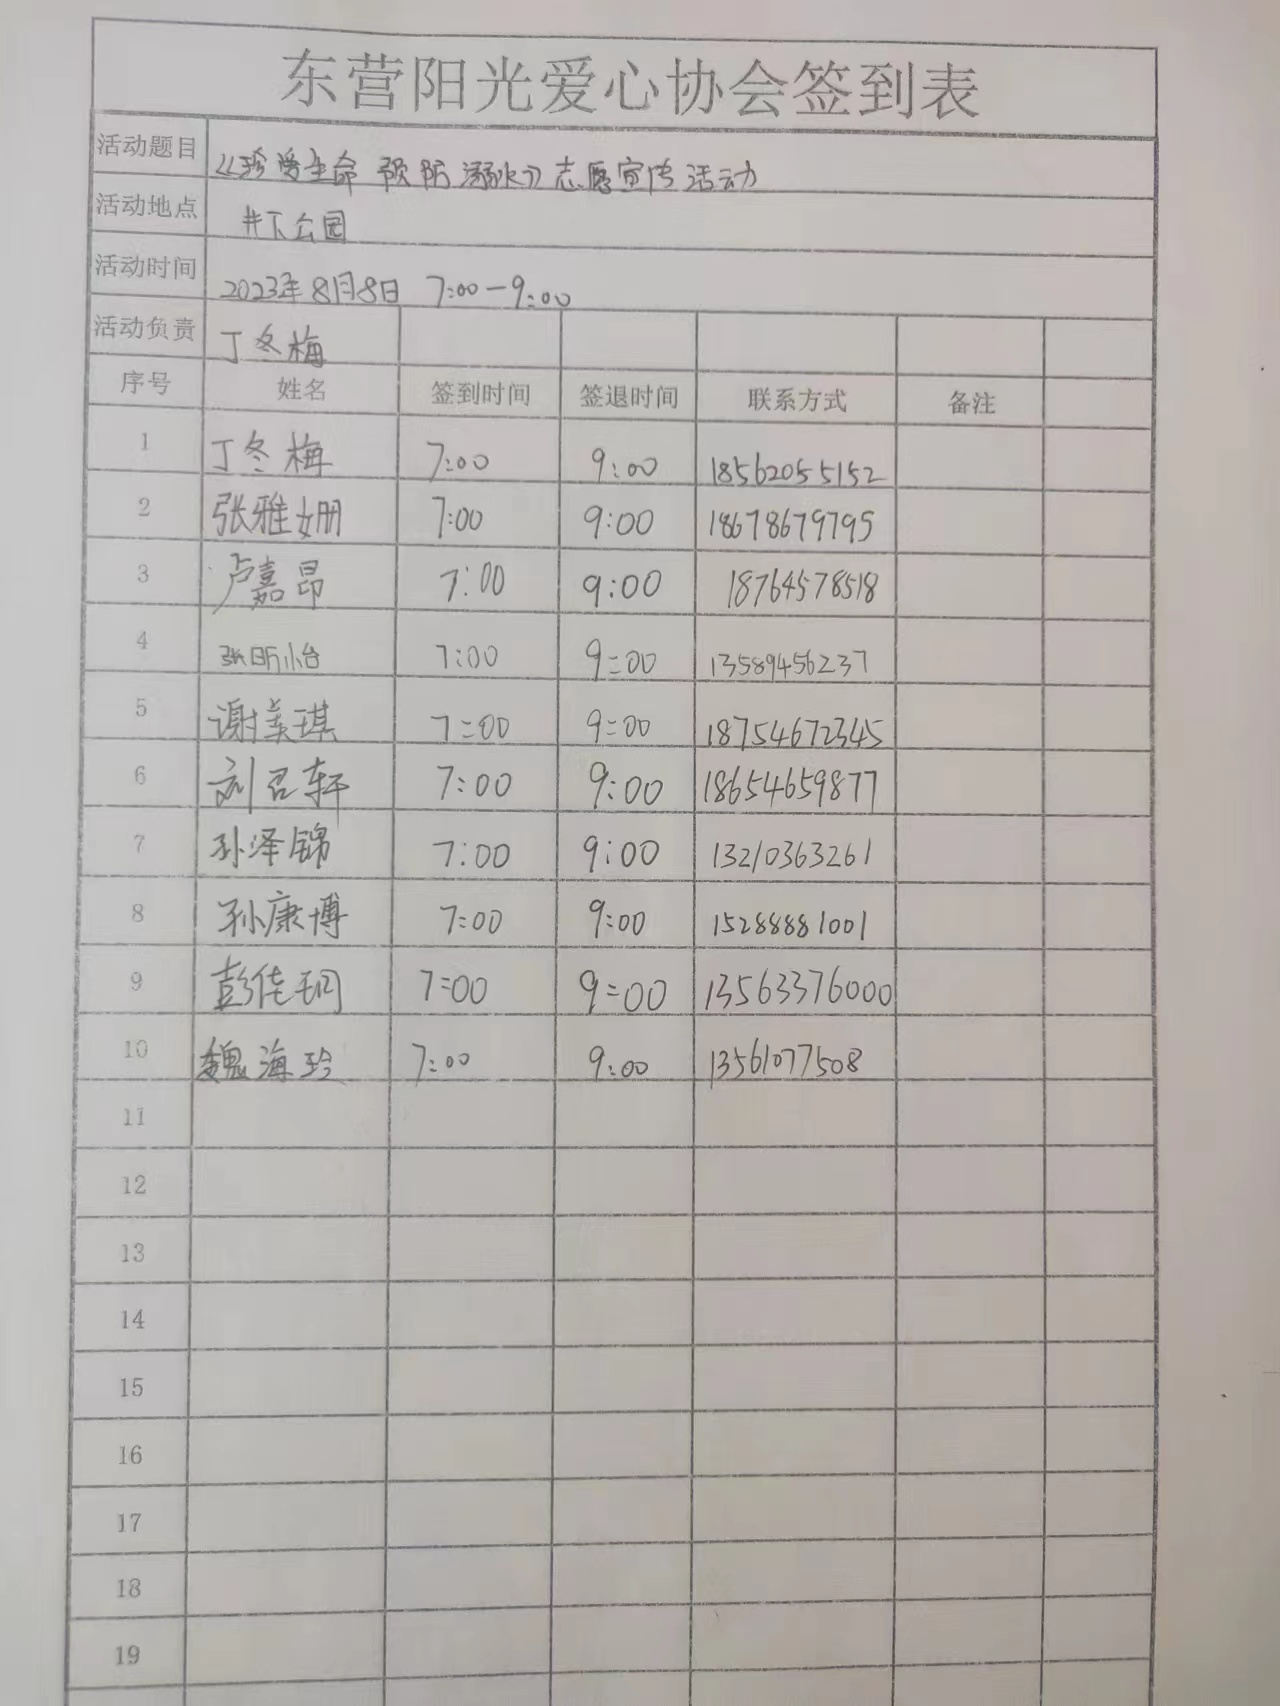 东营阳光爱心协会签到表
活动题目 《珍爱生命 预防溺水》志愿宣传活动
活动地点 井下公园
活动时间 2023年8月8日 7:00-9:00
活动负责 丁冬梅
序号 姓名 签到时间 签退时间 联系方式 备注
1 丁冬梅 7:00 9:00 18562055152
2 张雅姗 7:00 9:00 18678679795
3 卢嘉昂 7:00 9:00 18764578518
4 张昕怡 7:00 9:00 13589456237
5 谢美琪 7:00 9:00 18754672345
6 刘君轩 7:00 9:00 18654659877
7 孙泽锦 7:00 9:00 13210363261
8 孙康博 7:00 9:00 15288881001
9 彭佳玥 7:00 9:00 13563376000
10 魏海玲 7:00 9:00 13561077508
11
12
13
14
15
16
17
18
19